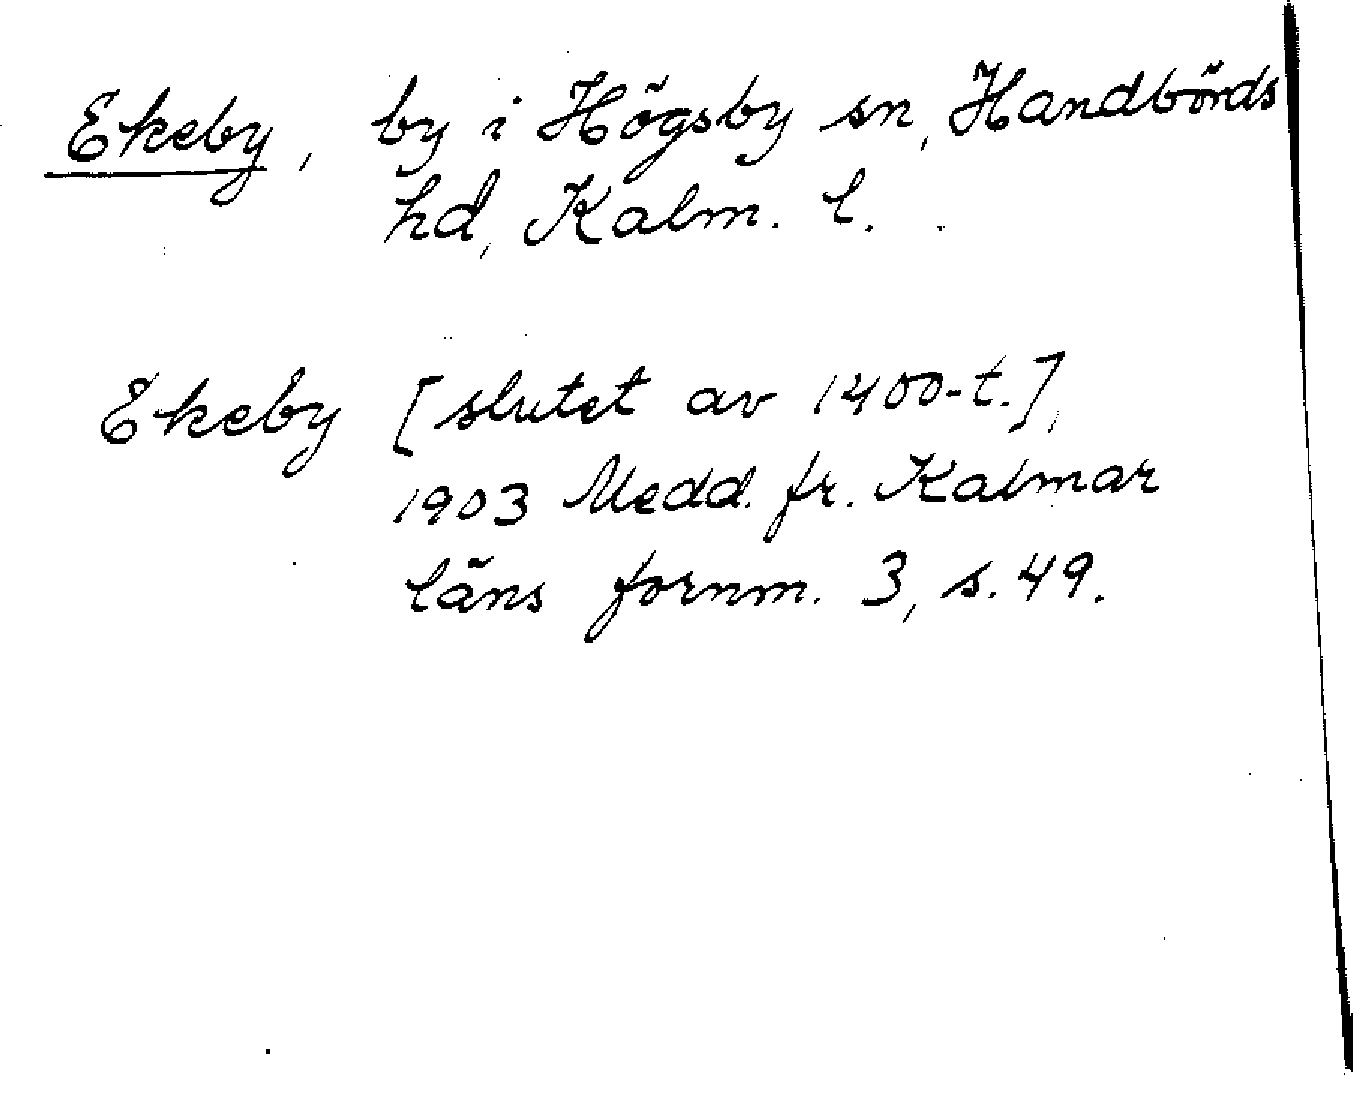 Ekeby, by i Högsby sn, Handbörds
hd, Kalm. l.
Ekeby [slutet av 1400-t.],
1903 Medd. fr. Kalmar
läns fornm. 3, s. 49.